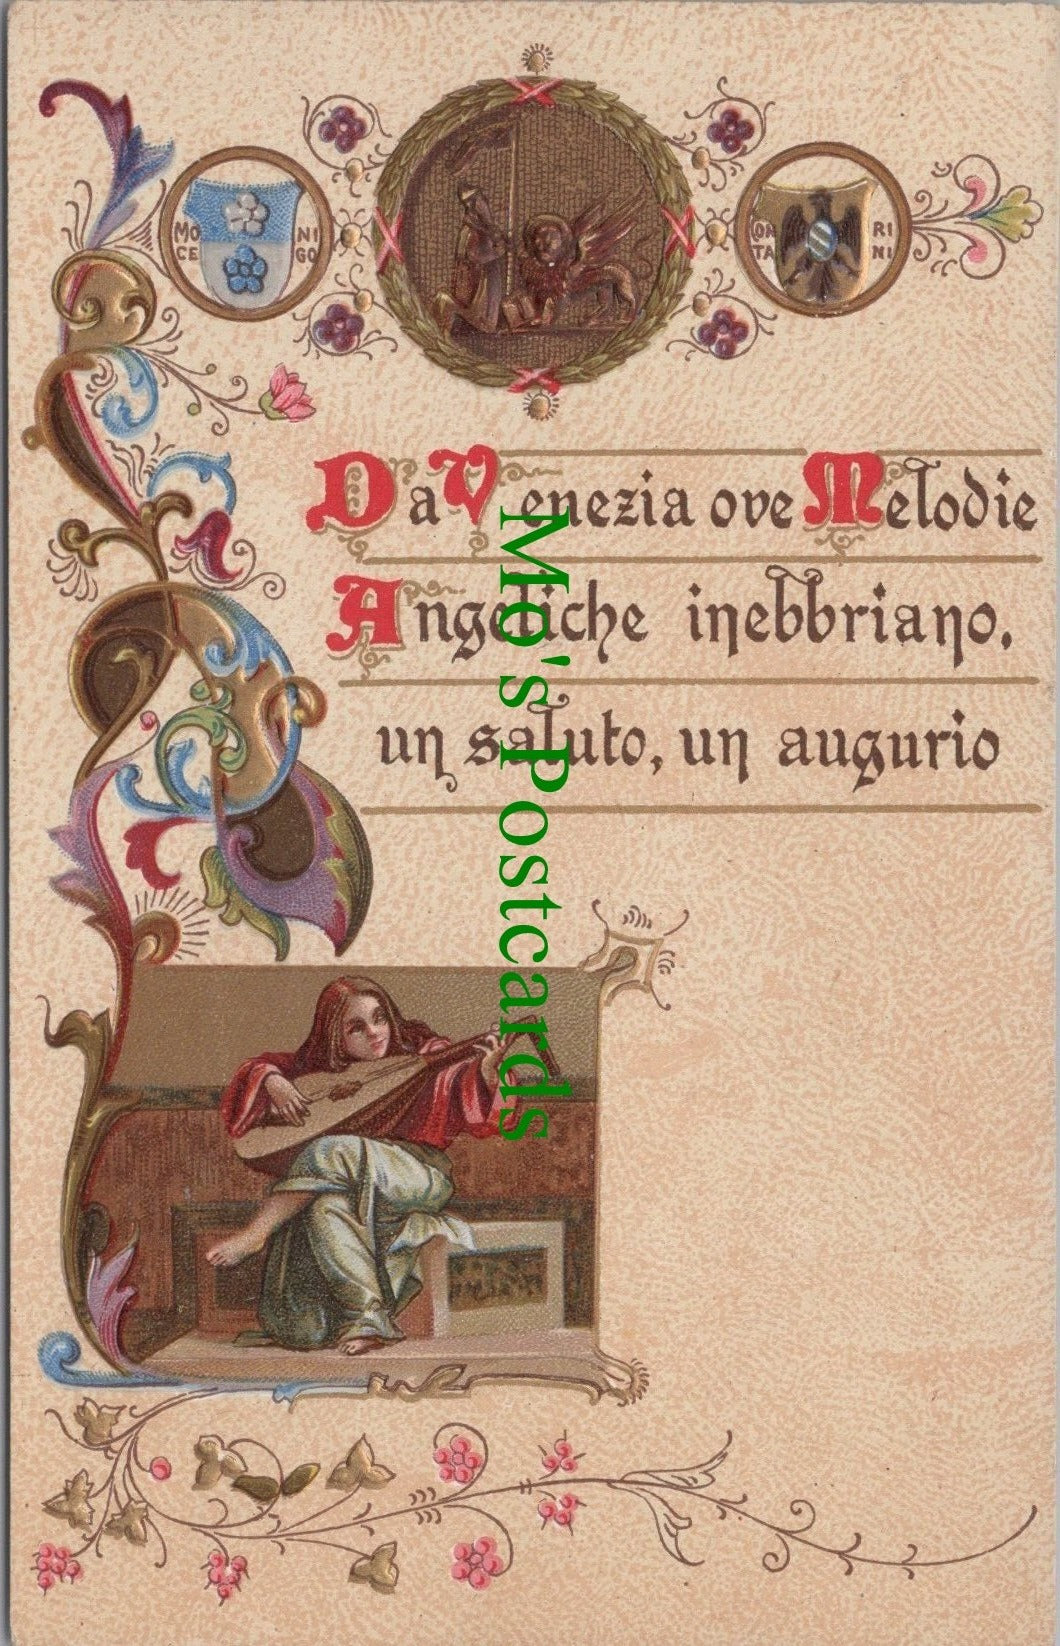 MO NI
CE GO
CON RI
TA NI
Da Venezia ove Melodie
Angeliche inebbriano,
un saluto, un augurio
Mo's Postcards